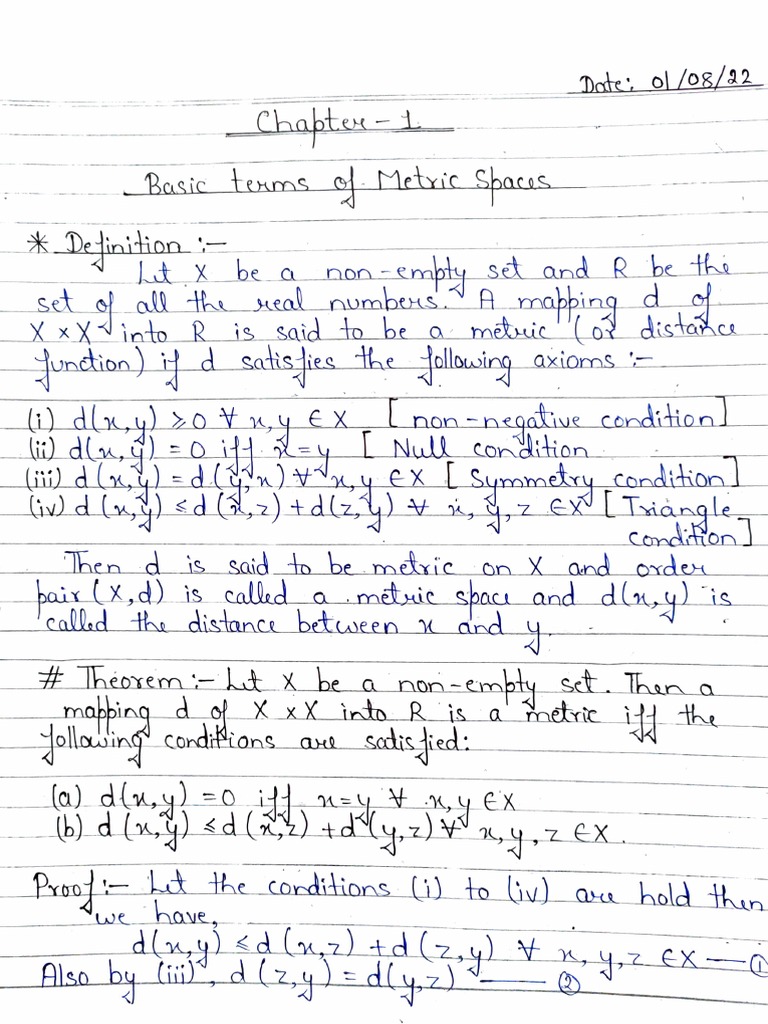 Date: 01/08/22
Chapter - 1
Basic terms of Metric Spaces
* Definition :-
Let X be a non-empty set and R be the
set of all the real numbers. A mapping d of
X × X into R is said to be a metric (or distance
function) if d satisfies the following axioms :-
(i) d(x,y) ≥ 0 ∀ x,y ∈ X [ non-negative condition ]
(ii) d(x,y) = 0 iff x=y [ Null condition
(iii) d(x,y) = d(y,x) ∀ x,y ∈ X [ Symmetry condition ]
(iv) d(x,y) ≤ d(x,z) + d(z,y) ∀ x, y, z ∈ X [ Triangle
condition ]
Then d is said to be metric on X and order
pair (X,d) is called a metric space and d(x,y) is
called the distance between x and y.
# Theorem :- Let X be a non-empty set. Then a
mapping d of X × X into R is a metric iff the
following conditions are satisfied:
(a) d(x,y) = 0 iff x=y ∀ x,y ∈ X
(b) d(x,y) ≤ d(x,z) + d(y,z) ∀ x,y,z ∈ X.
Proof :- Let the conditions (i) to (iv) are hold then
we have,
d(x,y) ≤ d(x,z) + d(z,y) ∀ x, y, z ∈ X — ①
Also by (iii), d(z,y) = d(y,z) — ②